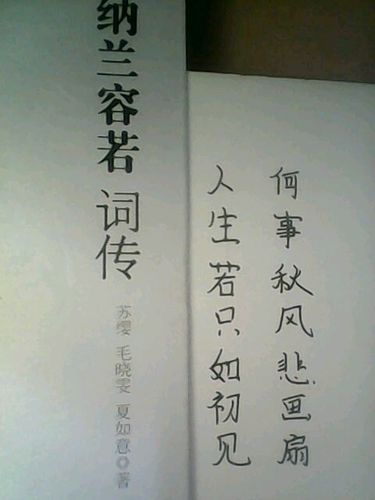 纳兰容若 词传
苏缨 毛晓雯 夏如意◎著
人生若只如初见
何事秋风悲画扇